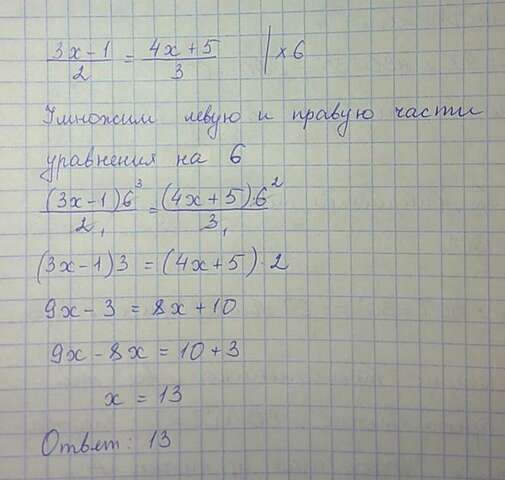 (3x-1)/2 = (4x+5)/3 | ×6
Умножим левую и правую части
уравнения на 6
(3x-1)6³/2₁ = (4x+5)·6²/3₁
(3x-1)3 = (4x+5)·2
9x-3 = 8x+10
9x-8x = 10+3
x = 13
Ответ: 13